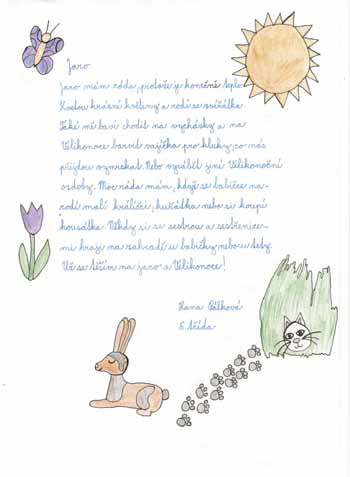 Jaro
Jaro mám ráda, protože je konečně teplo.
Kvetou krásné květiny a rodí se zvířátka.
Také mě baví chodit na vycházky a na
Velikonoce barvit vajíčka pro kluky, co nás
přijdou vymrskat. Nebo vyrábět jiné Velikonoční
ozdoby. Moc ráda mám, když se babičce na-
rodí malí králíčci, kuřátka nebo si koupí
housátka. Někdy si se sestrou a sestřenice-
mi hraji na zahradě u babičky nebo u tety.
Už se těším na jaro a Velikonoce!
Hana Pálková
5. třída